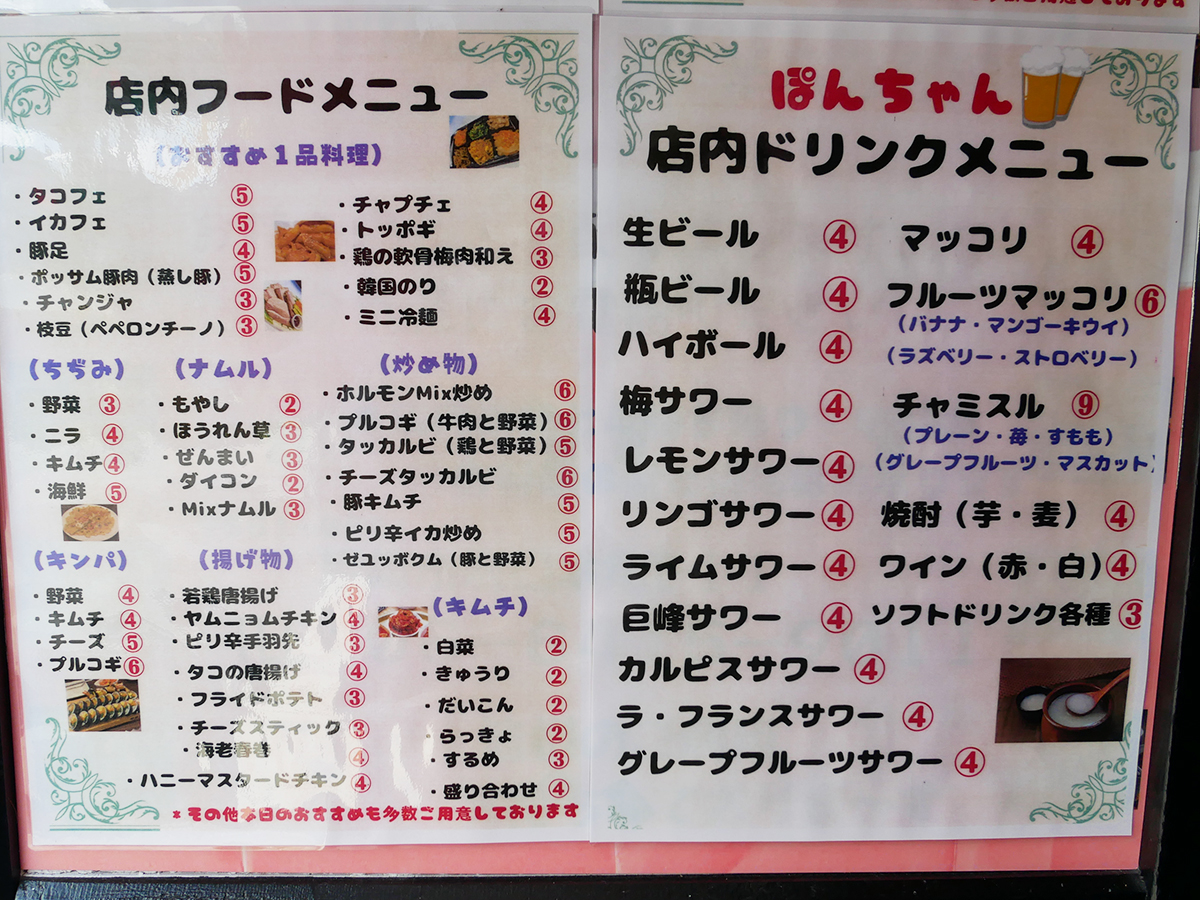 店内フードメニュー
(おすすめ1品料理)
・タコフェ ⑤
・イカフェ ⑤
・豚足 ④
・ポッサム豚肉(蒸し豚) ⑤
・チャンジャ ③
・枝豆(ペペロンチーノ) ③
・チャプチェ ④
・トッポギ ④
・鶏の軟骨梅肉和え ③
・韓国のり ②
・ミニ冷麺 ④
(ちぢみ)
・野菜 ③
・ニラ ④
・キムチ ④
・海鮮 ⑤
(ナムル)
・もやし ②
・ほうれん草 ③
・ぜんまい ③
・ダイコン ②
・Mixナムル ③
(炒め物)
・ホルモンMix炒め ⑥
・プルコギ(牛肉と野菜) ⑥
・タッカルビ(鶏と野菜) ⑤
・チーズタッカルビ ⑥
・豚キムチ ⑤
・ピリ辛イカ炒め ⑤
・ゼユッボクム(豚と野菜) ⑤
(キンパ)
・野菜 ④
・キムチ ④
・チーズ ⑤
・プルコギ ⑥
(揚げ物)
・若鶏唐揚げ ③
・ヤムニョムチキン ④
・ピリ辛手羽先 ③
・タコの唐揚げ ④
・フライドポテト ③
・チーズスティック ③
・海老春巻 ④
・ハニーマスタードチキン ④
(キムチ)
・白菜 ②
・きゅうり ②
・だいこん ②
・らっきょ ②
・するめ ③
・盛り合わせ ④
*その他本日のおすすめも多数ご用意しております
ぽんちゃん
店内ドリンクメニュー
生ビール ④
瓶ビール ④
ハイボール ④
梅サワー ④
レモンサワー ④
リンゴサワー ④
ライムサワー ④
巨峰サワー ④
カルピスサワー ④
ラ・フランスサワー ④
グレープフルーツサワー ④
マッコリ ④
フルーツマッコリ ⑥
(バナナ・マンゴーキウイ)
(ラズベリー・ストロベリー)
チャミスル ⑨
(プレーン・苺・すもも)
(グレープフルーツ・マスカット)
焼酎(芋・麦) ④
ワイン(赤・白) ④
ソフトドリンク各種 ③